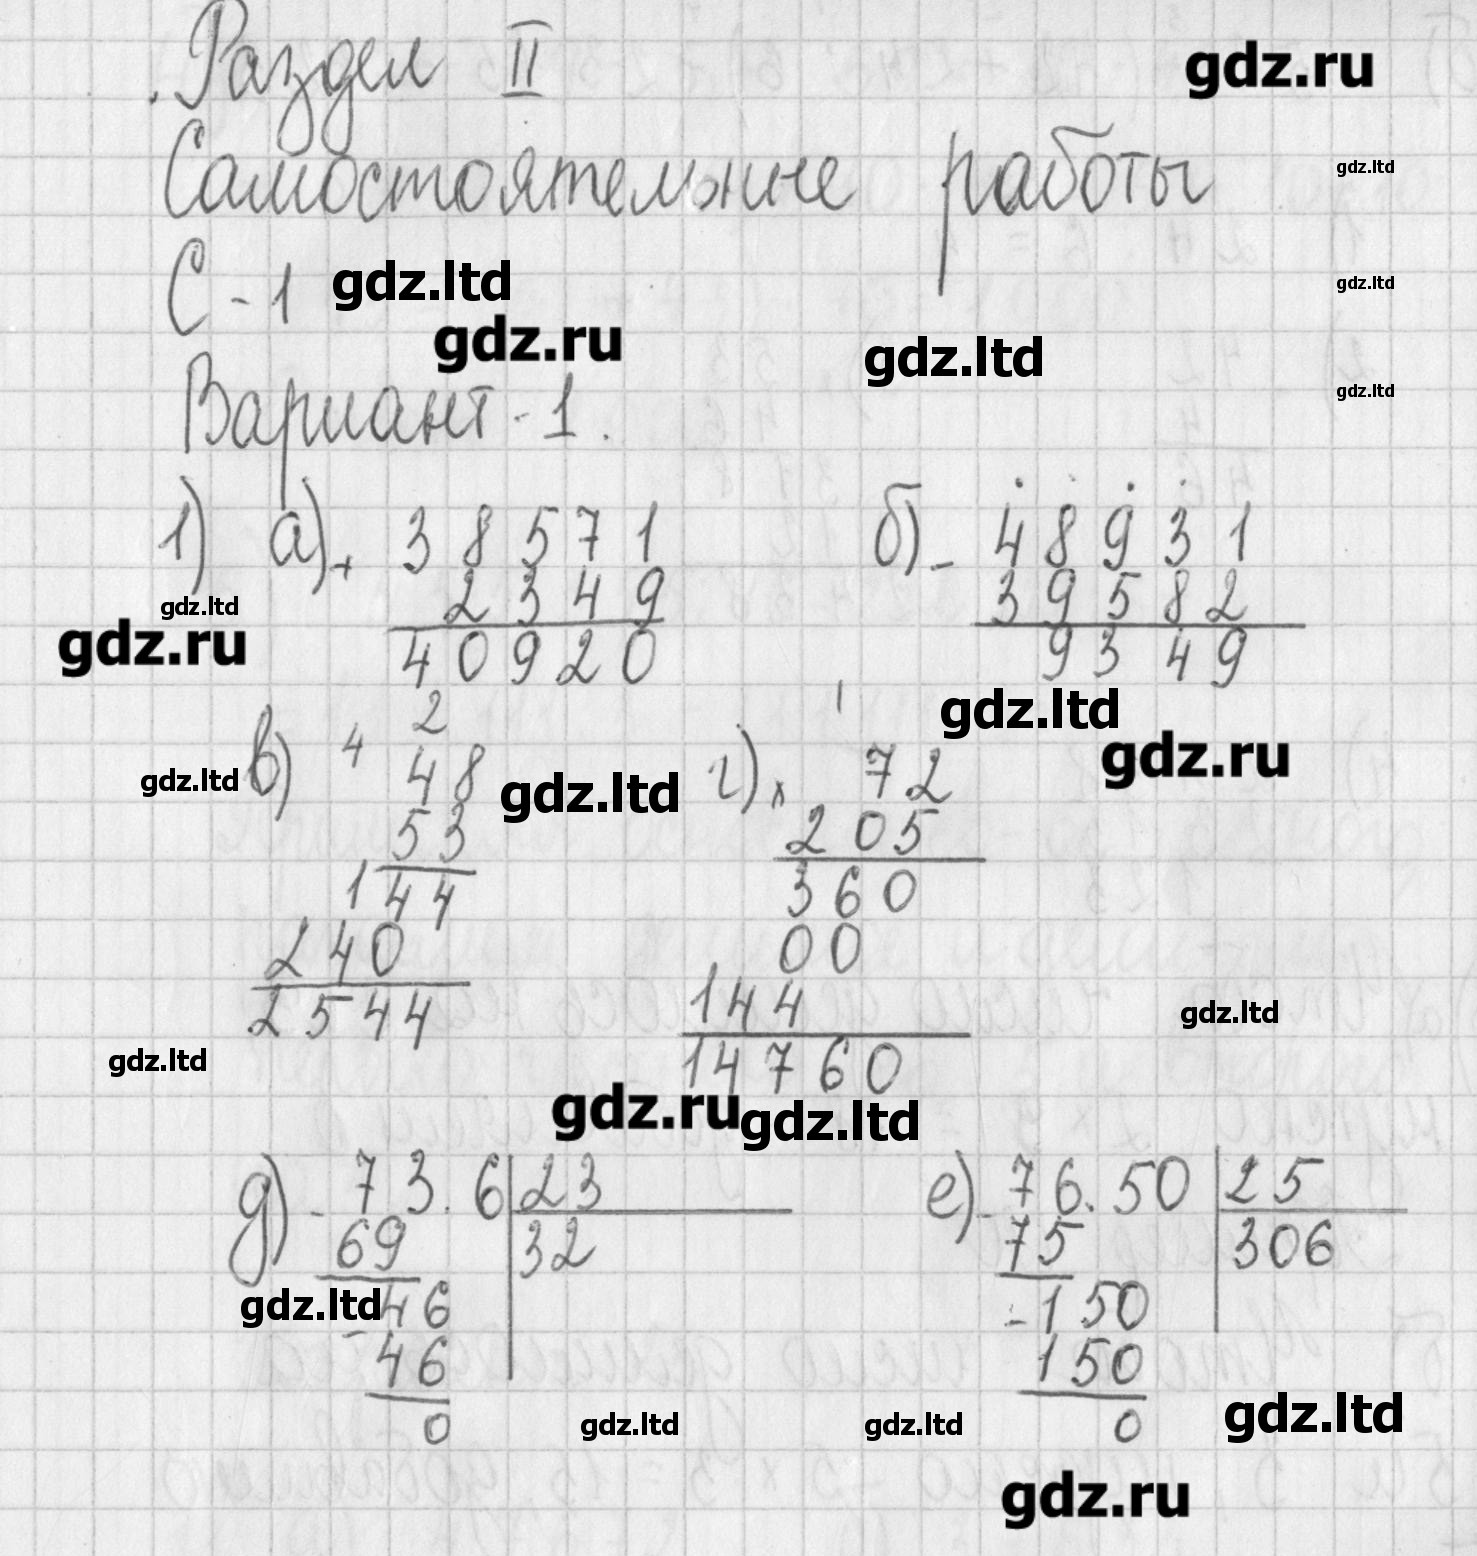 Раздел II
gdz.ru
Самостоятельные работы
gdz.ltd
С-1 gdz.ltd
gdz.ltd
gdz.ru
gdz.ltd
Вариант-1.
gdz.ltd
1) а) + 38571 б) - 48931
2349 39582
gdz.ltd
gdz.ru
40920 9349
gdz.ltd
2 1
gdz.ru
4
в) 48 г) x 72
gdz.ltd
gdz.ltd
53 205
144 360
240 00
2544 144
gdz.ltd
gdz.ltd
14760
gdz.ru
gdz.ltd
д) - 73.6 23 е) - 76.50 25
69 32 75 306
gdz.ltd
46 - 150
- 46 150
0 0
gdz.ltd
gdz.ltd
gdz.ltd
gdz.ru